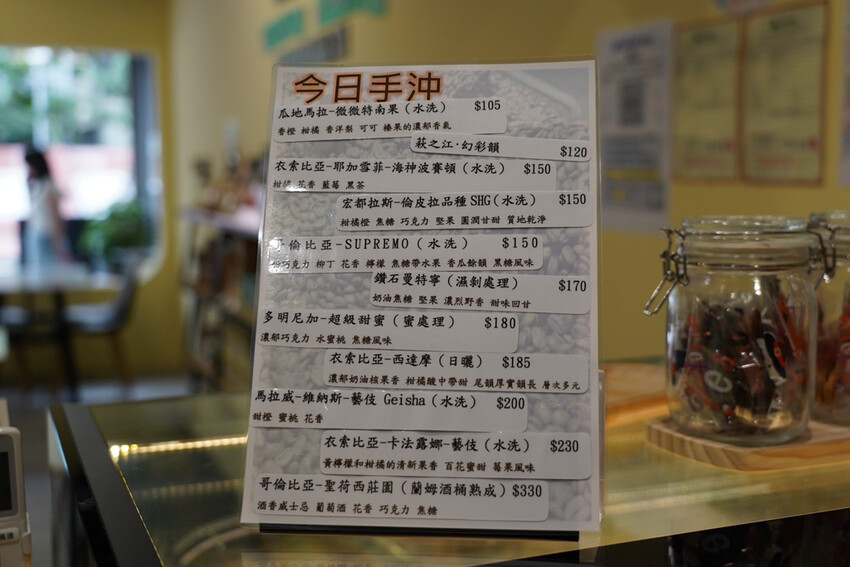 今日手沖
瓜地馬拉-微微特南果（水洗） $105
香橙 柑橘 香洋梨 可可 榛果的濃郁香氣
萩之江·幻彩韻 $120
衣索比亞-耶加雪菲-海神波賽頓（水洗） $150
柑橘 花香 藍莓 黑茶
宏都拉斯-倫皮拉品種SHG（水洗） $150
柑橘橙 焦糖 巧克力 堅果 圓潤甘甜 質地乾淨
哥倫比亞-SUPREMO（水洗） $150
巧克力 柳丁 花香 檸檬 焦糖帶水果 香瓜餘韻 黑糖風味
鑽石曼特寧（濕剝處理） $170
奶油焦糖 堅果 濃烈野香 甜味回甘
多明尼加-超級甜蜜（蜜處理） $180
濃郁巧克力 水蜜桃 焦糖風味
衣索比亞-西達摩（日曬） $185
濃郁奶油核果香 柑橘酸中帶甜 尾韻厚實韻長 層次多元
馬拉威-維納斯-藝伎 Geisha（水洗） $200
甜橙 蜜桃 花香
衣索比亞-卡法露娜-藝伎（水洗） $230
黃檸檬和柑橘的清新果香 百花蜜甜 莓果風味
哥倫比亞-聖荷西莊園（蘭姆酒桶熟成） $330
酒香威士忌 葡萄酒 花香 巧克力 焦糖